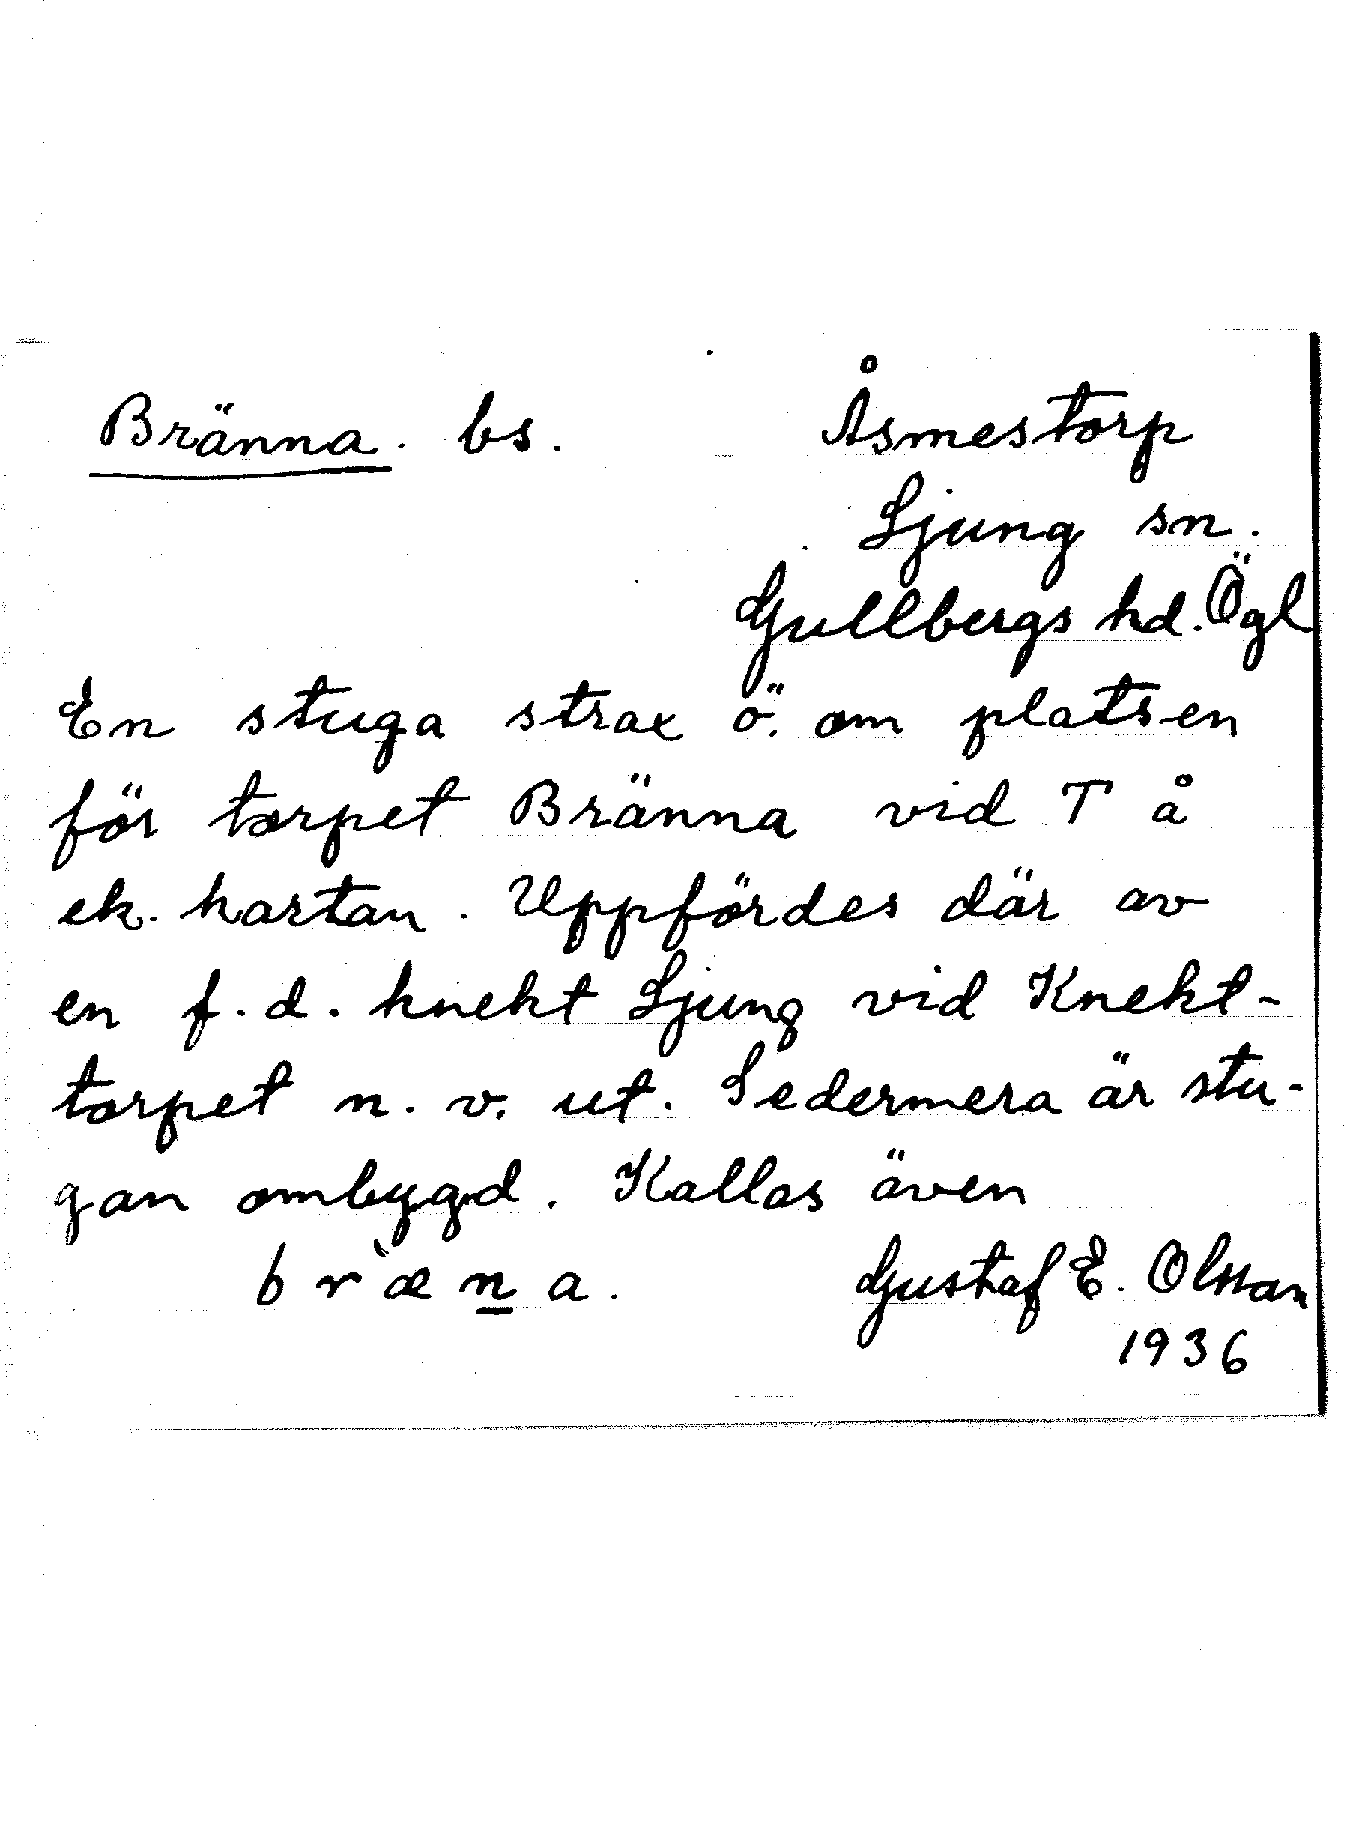 Bränna. bs. Åsmestorp
Ljung sn.
Gullbergs hd. Ögl
En stuga strax ö. om platsen
för torpet Bränna vid T å
ek. kartan. Uppfördes där av
en f.d. knekt Ljung vid Knekt-
torpet n. v. ut. Sedermera är stu-
gan ombygd. Kallas även
br&#768;æna. Gustaf E. Olsson
1936